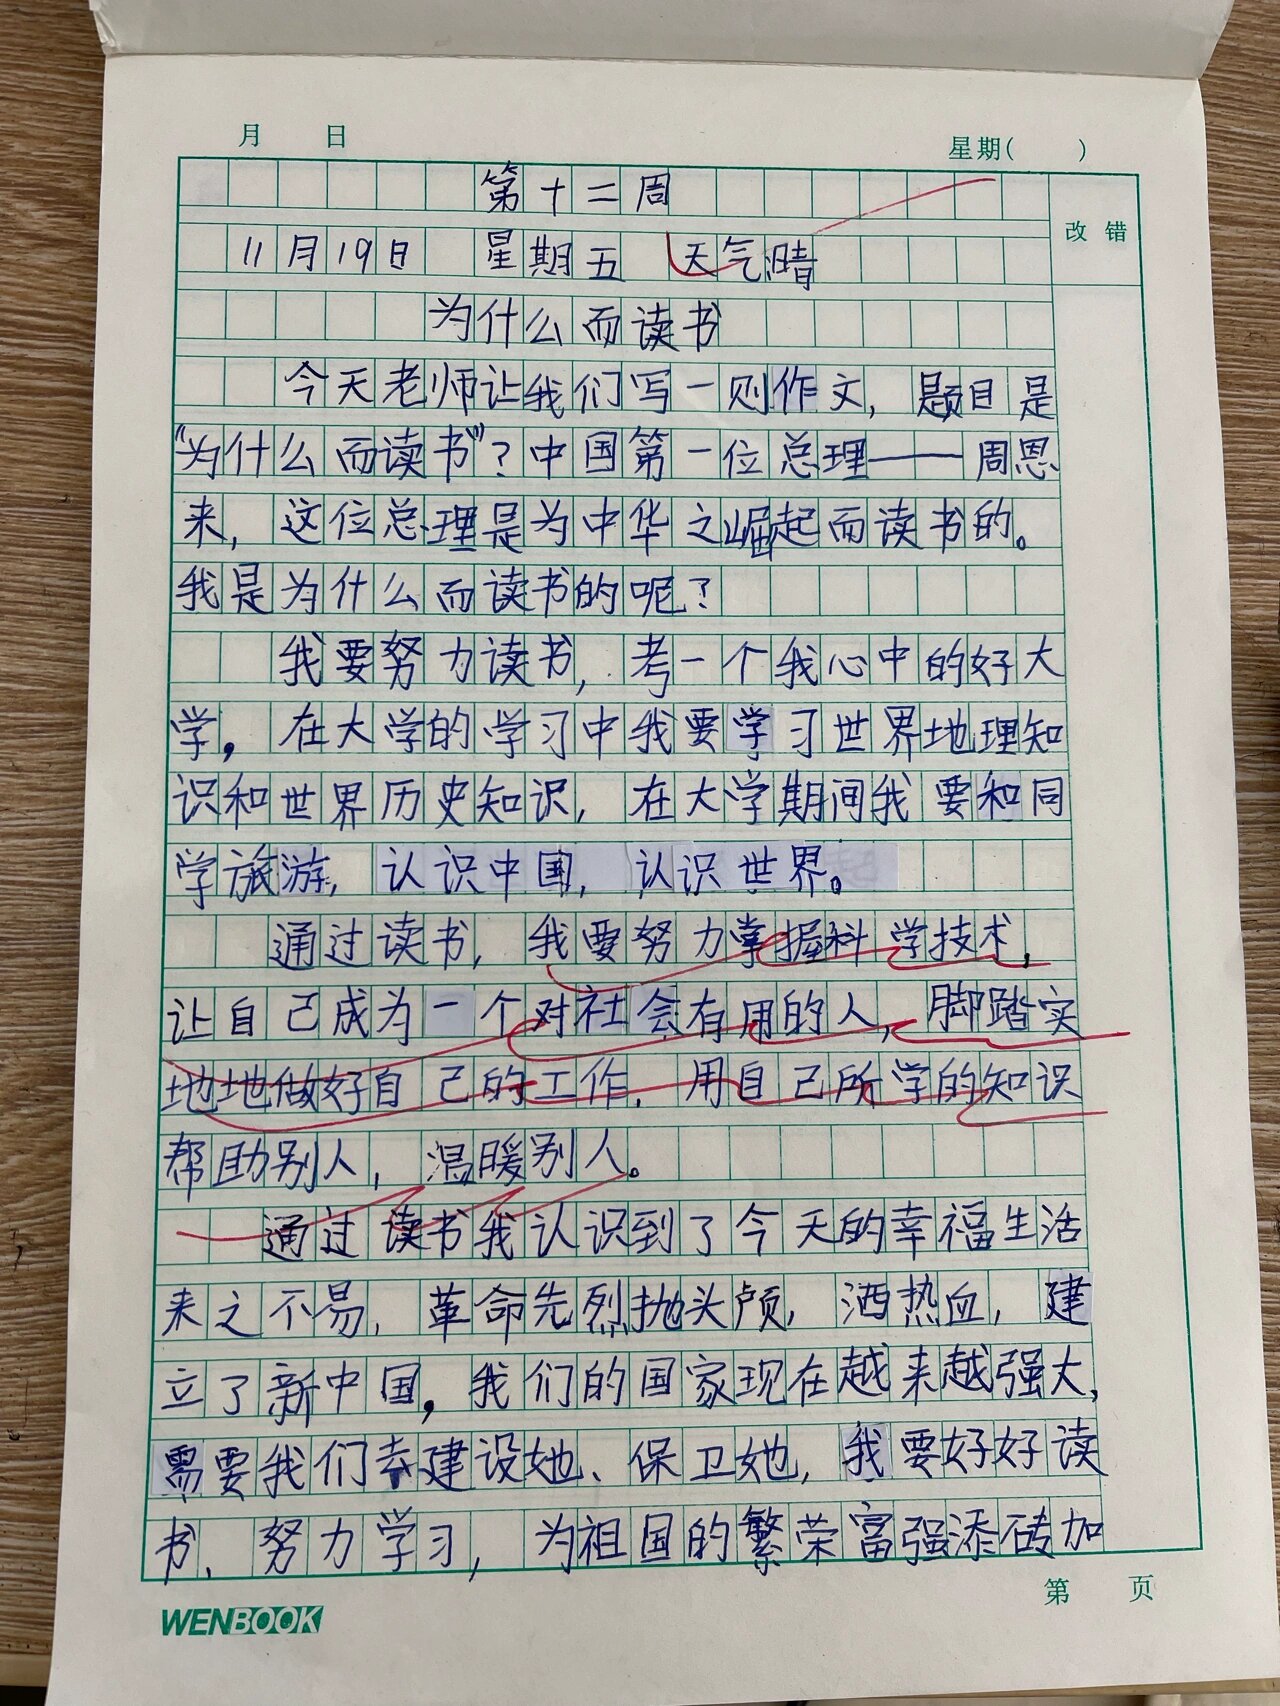 月 日 星期( )
第十二周
改错
11月19日 星期五 天气晴
为什么而读书
今天老师让我们写一则作文，题目是
“为什么而读书”？中国第一位总理——周恩
来，这位总理是为中华之崛起而读书的。
我是为什么而读书的呢？
我要努力读书，考一个我心中的好大
学。在大学的学习中我要学习世界地理知
识和世界历史知识，在大学期间我要和同
学旅游，认识中国，认识世界。
通过读书，我要努力掌握科学技术，
让自己成为一个对社会有用的人，脚踏实
地地做好自己的工作，用自己所学的知识
帮助别人，温暖别人。
通过读书我认识到了今天的幸福生活
来之不易，革命先烈抛头颅，洒热血，建
立了新中国，我们的国家现在越来越强大，
需要我们去建设她、保卫她，我要好好读
书、努力学习，为祖国的繁荣富强添砖加
第 页
WENBOOK